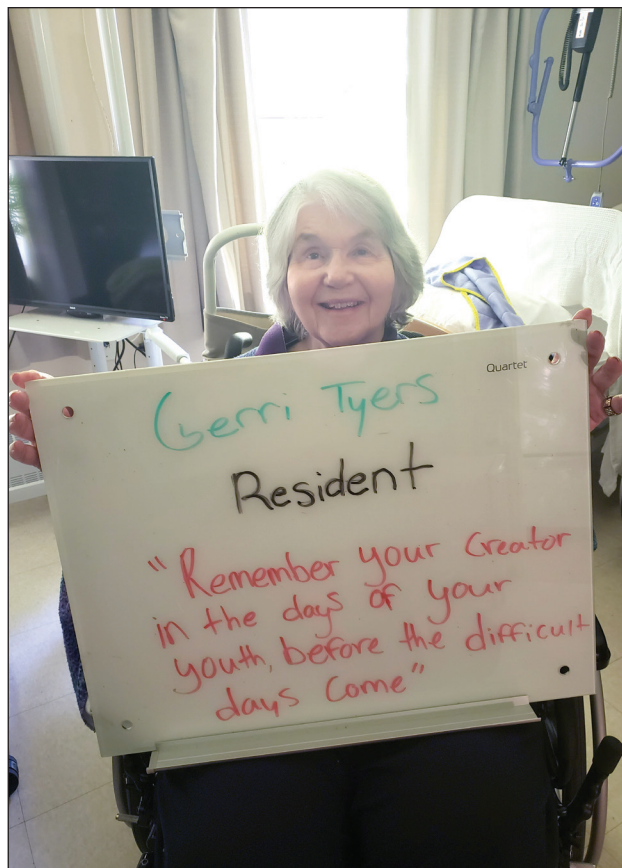 Quartet
Gerri Tyers
Resident
"Remember your Creator
in the days of your
youth, before the difficult
days come"